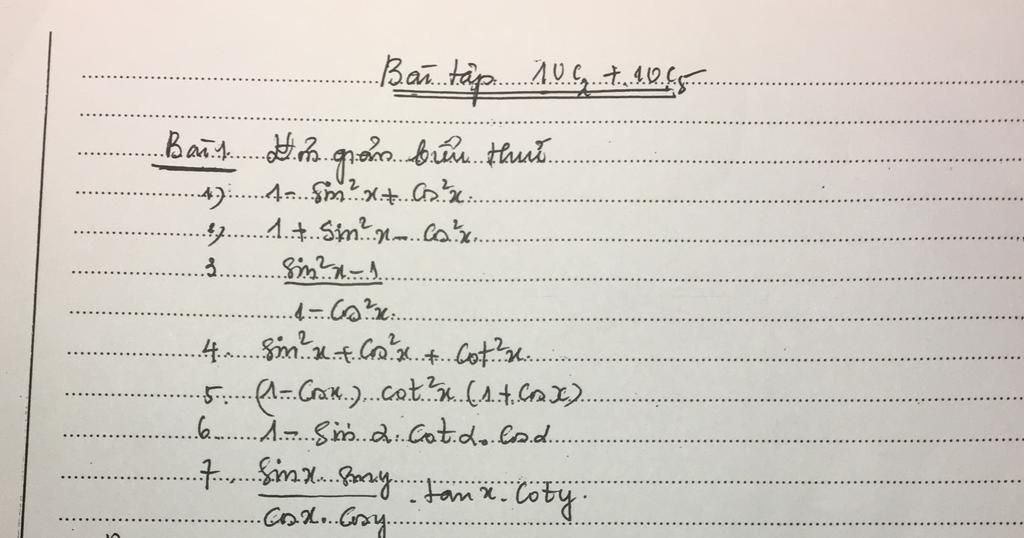 Bài tập 10C2 + 10C5
Bài 1 Đơn giản biểu thức
1) 1 - sin²x + cos²x.
2) 1 + sin²x - cos²x.
3 sin²x - 1
1 - cos²x.
4. sin²x + cos²x + cot²x.
5. (1 - cosx). cot²x (1 + cosx)
6. 1 - sin α. cot α. cos α
7. sinx. siny . tanx. coty.
cosx. cosy